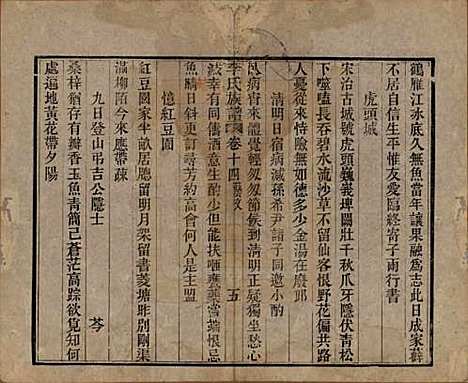 鶴雁江永底久無魚當年讓果融為志此日成家蘚
不居自信生平惟友愛臨終寄子兩行書
虎頭城
宋治古城號虎頭巍峩埤闠壯千秋爪牙隱伏青松
下噬嗑長吞碧水流沙草不留仙客恨野花偏共路
人憂從來恃險無如德多少金湯在廢邱
清明日宿病減孫希尹諸子同邀小酌
臥病宵來體覺輕匆匆節候到清明正疑獨坐愁心
寂幸有同儕酒意生酌少但能扶
當端恨忌
魚腸日斜更訂尋芳約高會何人是主盟
李氏族譜 卷十四 藝文 五
憶紅豆園
紅豆園家半畝居廳留明月架留書菱塘昨別剛渠
滿塴陌今來應帶疎
九日登山弔吉公隱士 芩
桑梓猶存有瓣香玉魚青簡已蒼茫高踪欲覓知何
處遍地黃花帶夕陽